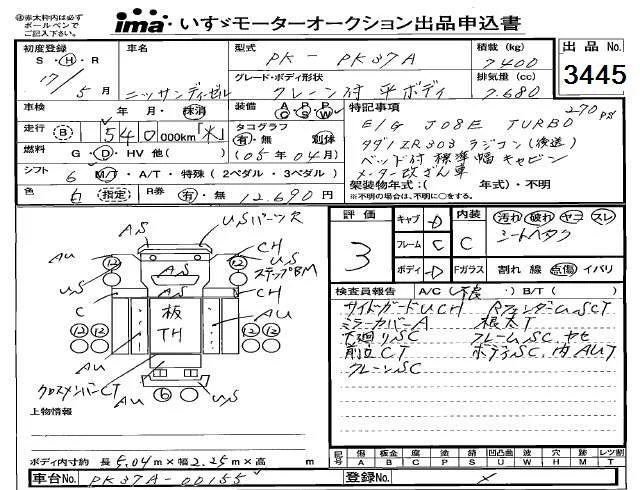 ㊟赤太枠内は必ず
ボールペンで
ご記入下さい。
ima いすゞモーターオークション出品申込書
初度登録 車名 型式 PK - PK37A 積載 (kg) 7400 出品 No.
S・H・R 17/5月 ニッサンディーゼル グレード・ボディ形状 クレーン付 平ボディ 排気量 (cc) 7.680 3445
車検 年・月・抹消 装備 A/C P/S P/W 特記事項 270ps
走行 B 540,000km「水」 タコグラフ 有・無 別体 E/G J08E TURBO
燃料 G・D・HV 他( ) (05年04月) タダノZR303 ラジコン(後送)
シフト 6 M/T・A/T・特殊(2ペダル・3ペダル) ベッド付 標準幅 キャビン
メーター改ざん車
色 白 指定 R券 有・無 12,690円 架装物年式:( 年式)・不明
※不明の場合は、不明に○をする。
評価 3 キャブ D 内装 C 汚れ 破れ ヤコ スレ
フレーム C シートヘタク
ボディ D Fガラス 割れ 線 点傷 イバリ
検査員報告 A/C(不良)B/T( )
サイドガードUCH RフェンダーUSCT
ミラーカバーA 根太T
下廻りSC フレームSC.ヤセ
前立CT ボデーSC.内AUT
クレーンSC
AS USバーツR
AU 12 12 CH
US US
ステップBM
AS
C CH
板 TH
AU
12 12 12 12
AS
クロスメンバーCT
AU 6 US
上物情報
ボディ内寸約 長 5.04m×幅 2.25m×高 m
記号 傷 A 板金 B 腐 C 塗 P 錆 S 凹凸曲 U 波 W 穴 H 跡 X レツ割 T
車台No. PK37A-00155 登録No. ×